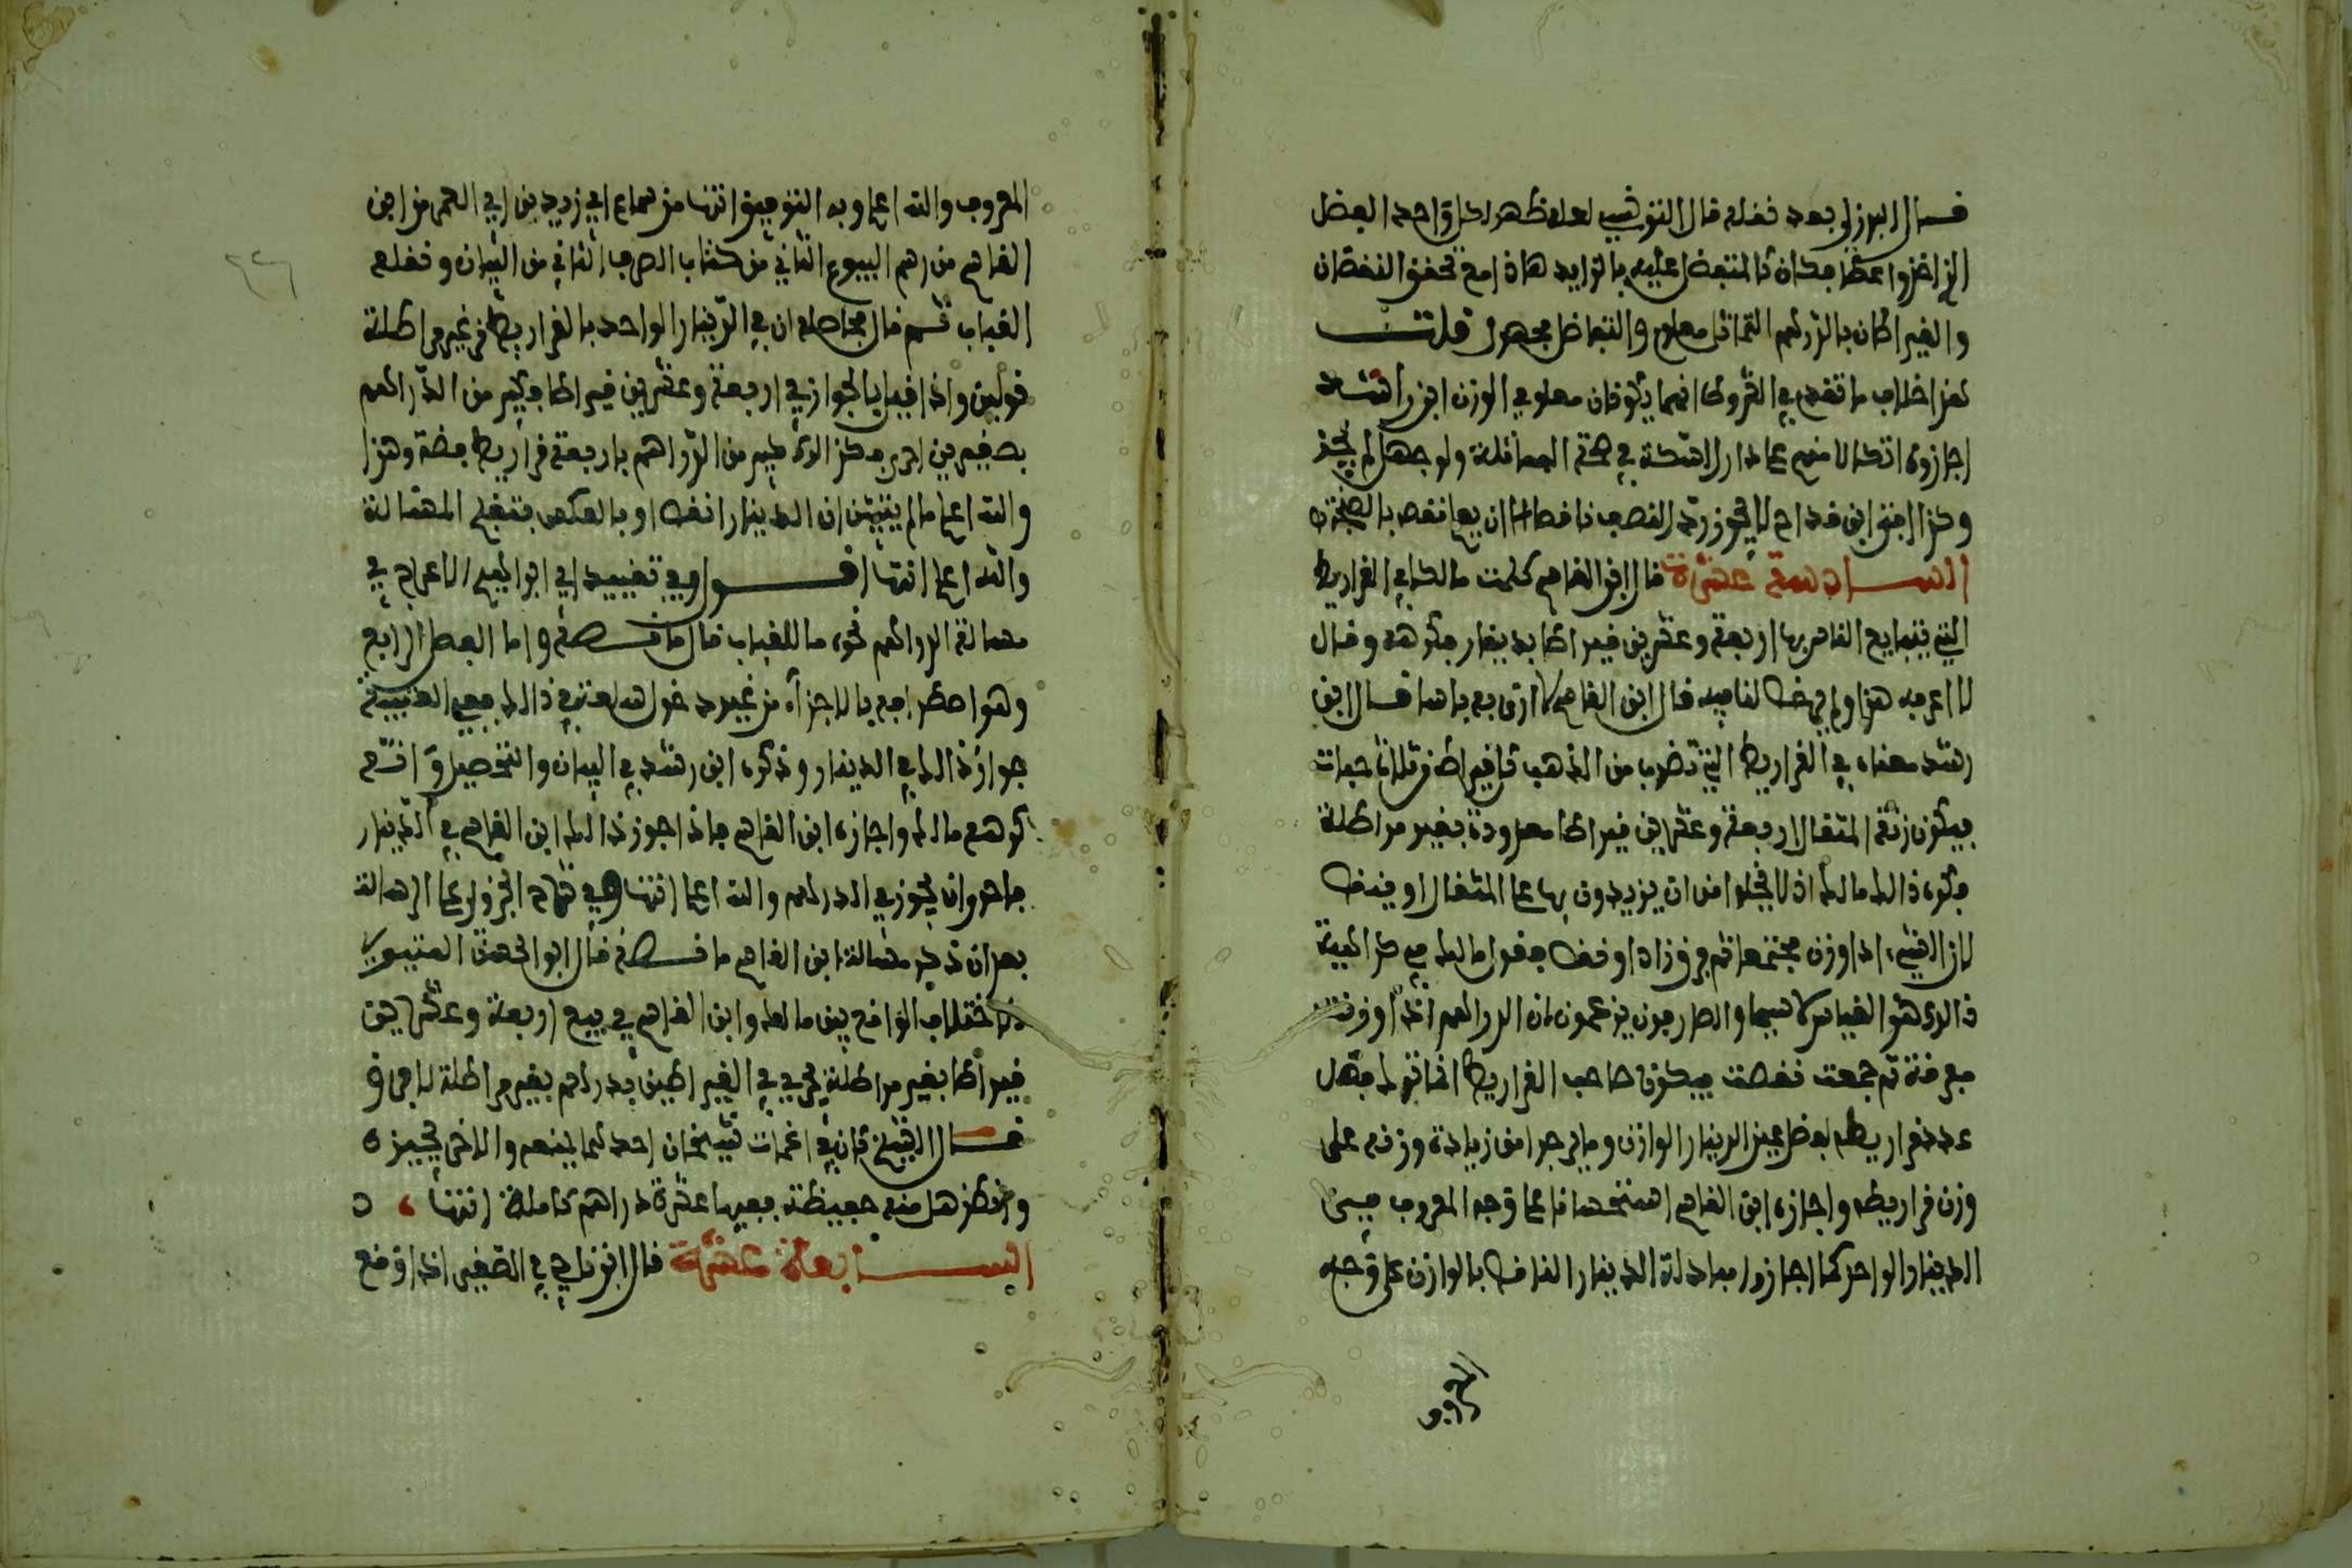 قال البرزلي بعد نقله قال التونسي لعله ظهر لكل واحد الفضل
الذي اخذوا عطا فكان كالمتفضل عليه بالزايد هاذا مع تحقق النقصان
والقيراطان بالدرهم التماثل معلوم والتفاضل مجهول قلت
هذا خلاف ما تقدم في القروطا انهما يكونان معلومي الوزن ابن رشد
اجازوه اتكالا منهم على دار السكة في صحة المماثلة ولو جهل لم يجز
وكذا افتى ابن قداح لا يجوز رد النصف ناقصا الا ان يعلم نقصه بالصنجة
السادسة عشرة قال ابن القاسم كلمت مالكا في القراريط
التي يتبايع الناس بها اربعة وعشرين قيراطا بدينار فكرهه وقال
لا اعرف هذا ولم يرخص لنا فيه قال ابن القاسم لا ارى به باسا قال ابن
رشد معناه في القراريط التي تضرب من الذهب كل قيراط من ثلاث حبات
فيكون زنة المثقال اربعة وعشرين قيراطا معدودة بغير مراطلة
فكره ذالك مالك اذ لا يخلوا من ان يزيدون بها على المثقال او ينقص
لان الشيء اذا وزن مجتمعا ثم فرق زاد او نقص فقول مالك في كراهية
ذالك هو القياس لا سيما والصارفون يزعمون ان الدراهم اذا وزنت
مفرقة ثم جمعت نقصت فيكون صاحب القراريط انما ترك فضل
عدد قراريطه لفضل عين الدينار الوازن وما يرجوا من زيادة وزنه على
وزن قراريطه واجازه ابن القاسم استحسانا على وجه المعروف في
الدينار الواحد كما اجازوا مبادلة الدينار الناقص بالوازن على وجه
المعروف
المعروف والله اعلم وبه التوفيق انتهى من سماع ابي زيد بن ابي الغمر من ابن
القاسم من رسم البيوع الثاني من كتاب الصرف الثاني من البيان ونقله
القباب ثم قال فحاصله ان في الدينار الواحد بالقراريط من غير مراطلة
قولين واذا قيل بالجواز في اربعة وعشرين قيراطا فكثير من الدراهم
بصغيرين احرى فكذالك كبير من الدراهم باربعة قراريط فضة وهذا
والله اعلم ما لم يتبين ان الدينار انقص او بالعكس فتنقلب المسالة
والله اعلم انتهى اقول وفي تقييد ابي ابراهيم الاعرج في
مسالة الدراهم نحو ما للقباب قال ما نصه واما الفصل الرابع
وهو اصطرافه بالاجزاء من غير دخول سلعة في ذالك ففي العتبية
جواز ذالك في الدينار وذكره ابن رشد في البيان والتحصيل وانه
كرهه مالك واجازه ابن القاسم فاذا جوز ذالك ابن القاسم في الدينار
فاحرى ان يجوز في الدرهم والله اعلم انتهى وفي شرح الجزولي على الرسالة
بعد ان ذكر مسالة ابن القاسم ما نصه قال ابو الحسن المتيوي
الاختلاف الواقع بين مالك وابن القاسم في بيع اربعة وعشرين
قيراطا بغير مراطلة يجري في القيراطين بدرهم بغير مراطلة لا فرق
قال الشيخ كان في اغمات شيخان احدهما يمنعه والاخر يجيزه
وانظر هل منه حفيظة فيها عشرة دراهم كاملة انتهى
السابعة عشرة قال ابن ناجي في الصغير اذا وقع